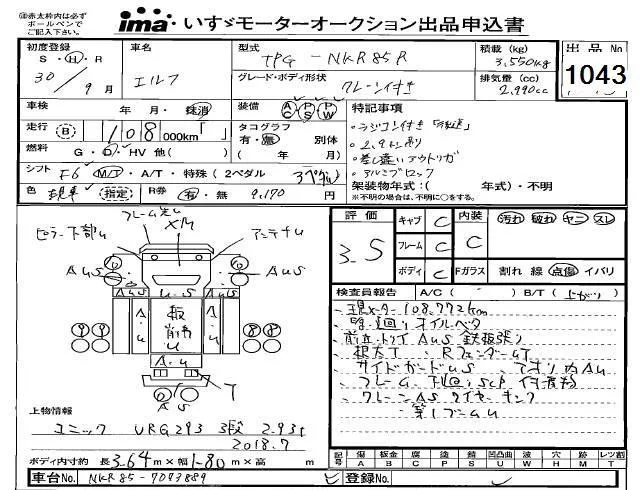 ㊟赤太枠内は必ず
ボールペンで
ご記入下さい。
ima いすゞモーターオークション出品申込書
初度登録
S・H・R
30年 9月
車名
エルフ
型式
TPG-NKR85R
グレード・ボディ形状
クレーン付き
積載 (kg)
3,550kg
排気量 (cc)
2,990cc
出品No
1043
車検 年・月・抹消
装備 AC PS PW
特記事項
走行 (B) 108 000km「 」
タコグラフ
有・無 別体
( 年 月)
燃料 G・D・HV 他( )
・ラジコン付き「後送」
・2.9t吊り
・差し違いアウトリガ
・アルミブロック
シフト F6 M/T・A/T・特殊(2ペダル 3ペダル)
架装物年式:( 年式)・不明
※不明の場合は、不明に○をする。
色 (指定) R券 有・無 9,170円
ピラー下部u
フレーム先u
アンテナu
XM
AuS
AuS
板
前
u
A.u
T
AS
評価
3.5
キャブ C
フレーム C
ボディ C
内装
C
Fガラス
汚れ 破れ ヤニ スレ
割れ 線 点傷 イバリ
検査員報告 A/C ( ) B/T ( 上がり )
現メーター 108,772km
オイルベタ
AuS 鉄板張り
RフェンダーuT
サイドガードuS アオリ内Au
フレーム、下回りSCP 付着物
クレーンAS ワイヤーキンク
第1ブームu
上物情報
ユニック URG293 3段 2.93t
2018.7
ボディ内寸約 長3.64m×幅1.80m×高 m
記号 傷A 板金B 腐食C 塗装P サビS 凹U 凸凹曲 波W 穴H 跡M レンズ割T
車台No. NKR85-7073889
登録No.